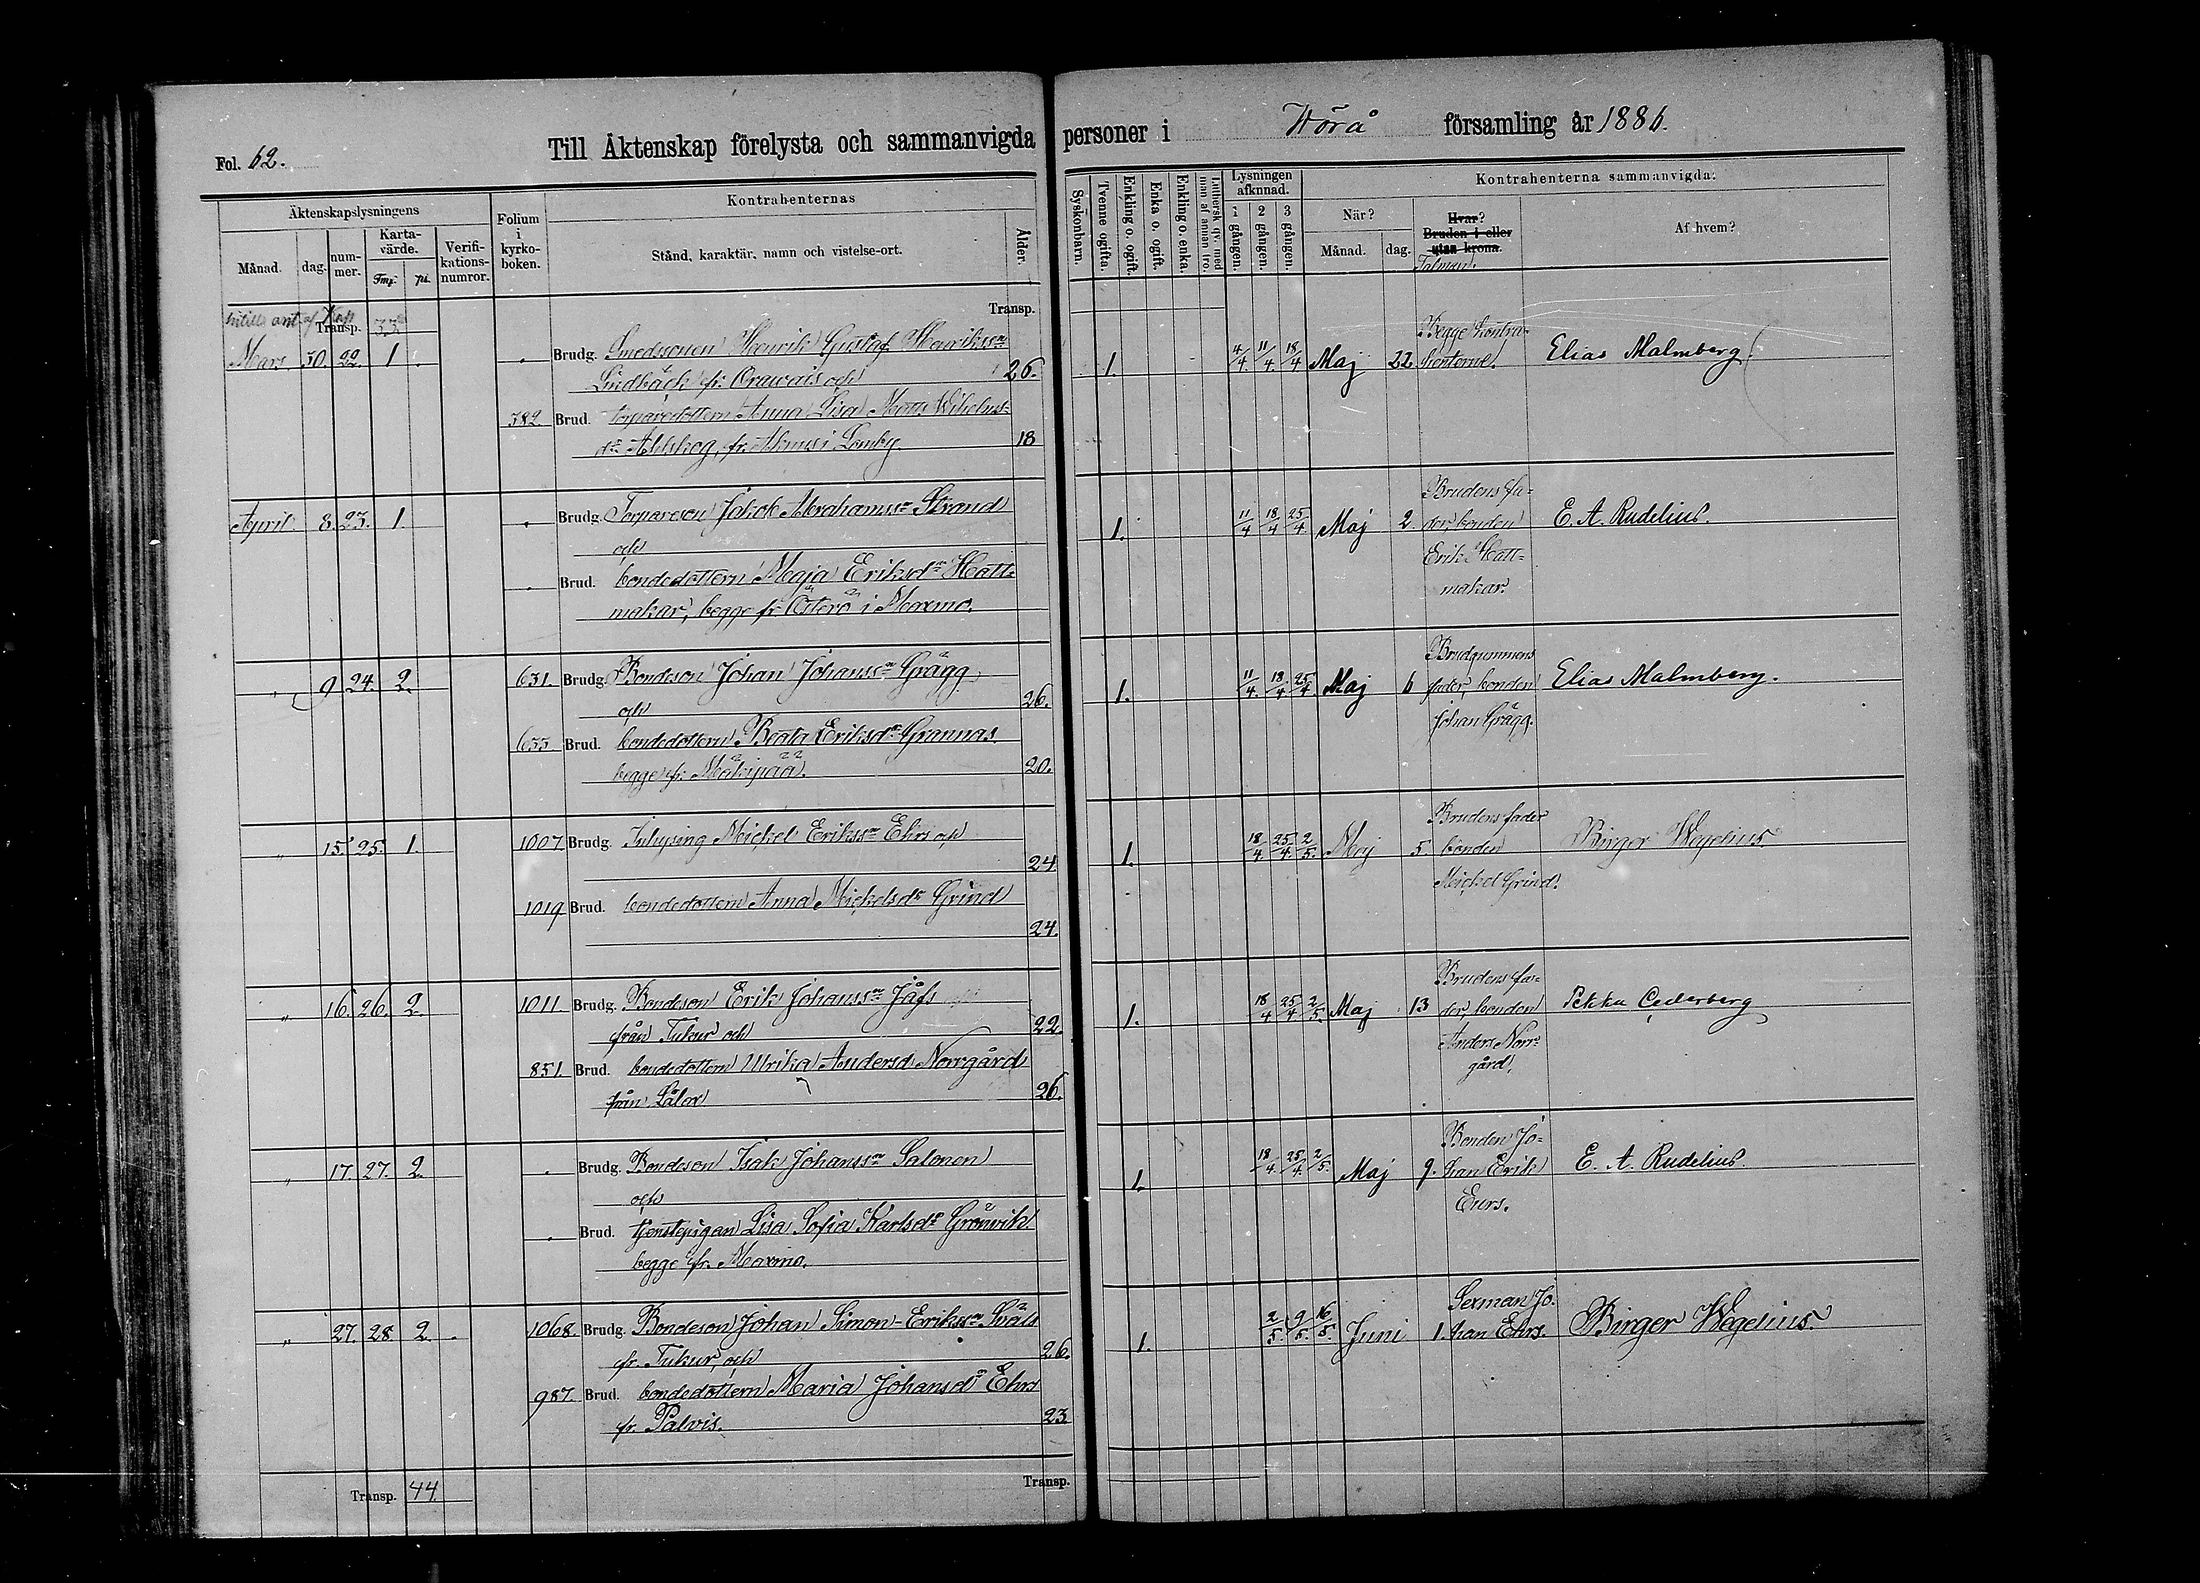 Fol. 62.
Till Äktenskap förelysta och sammanvigda personer i Wörå församling år 1886.
Äktenskapslysningens
Månad. dag. nummer. Kartavärde. Fmf. pi. Verifikationsnumror.
Folium i kyrkoboken.
Kontrahenternas
Stånd, karaktär, namn och vistelse-ort.
Ålder.
Syskonbarn. Tvenne ogifta. Enkling o. ogift. Enka o. ogift. Enkling o. enka.
Lysningen afkunnad.
1 gången. 2 gången. 3 gången.
Kontrahenterna sammanvigda:
När? Månad. dag.
Hvar? Bruden i eller utan krona.
Talman.
Af hvem?
Transp. 33
Transp.
Mars 30. 22. 1 . " Brudg. Smedsonen Henrik Gustaf Henrikssn
Lindbäck fr. Orawais och 26.
382 Brud. torparedottern Anna Lisa Matts Wilhelms
dr Ahlskog, fr. Lomby. 18
1. 4/4. 11/4. 18/4 Maj 22 Begge kontrahenterne. Elias Malmberg.
April 8. 23. 1. " Brudg. Torpareson Jakob Abrahamssn Strand
och
" Brud. bondedottern Maja Eriksdr Hattmakar, begge fr. Österö i Maxmo.
1. 11/4 18/4 25/4. Maj 2. Brudens fader, bonden Erik Hattmakar. E. A. Rudelius.
" 9 24. 2. 631. Brudg. Bondeson Johan Johanssn Grägg
och 26.
633 Brud. bondedottern Beata Eriksdr Grannas
begge fr. Mäkipää. 20.
1. 11/4. 18/4 25/4 Maj 6 Brudgummens fader, bonden Johan Grägg. Elias Malmberg.
" 15. 25. 1. 1007 Brudg. Inhysing Mickel Erikssn Ehrs och
24
1019 Brud. bondedottern Anna Mickelsdr Grind
24.
1. 18/4 25/4. 2/5. Maj 5. Brudens fader bonden Mickel Grind. Birger Wegelius
" 16. 26. 2. 1011. Brudg. Bondeson Erik Johanssn Jåfs
från Tukur och 22.
851. Brud. bondedottern Ulrika Andersd Norrgård
från Lålax 26.
1. 18/4 25/4 2/5. Maj 13 Brudens fader, bonden Anders Norrgård. Pekka Cederberg
" 17. 27. 2. " Brudg. Bondeson Isak Johanssn Salonen
och
" Brud. tjenstepigan Lisa Sofia Karlsdr Grönvik
begge fr. Maxmo.
1. 18/4. 25/4. 2/5. Maj 9. Bonden Johan Erik Eurs. E. A. Rudelius.
" 27. 28 2. . 1068. Brudg. Bondeson Johan Simon-Erikssn Svals
fr. Tukur, och 26.
987. Brud. bondedottern Maria Johansdr Ehrs
fr. Palvis. 23
1. 2/5. 9/5. 16/5. Juni 1. Sexman Johan Ehrs. Birger Wegelius.
Transp. 44.
Transp.